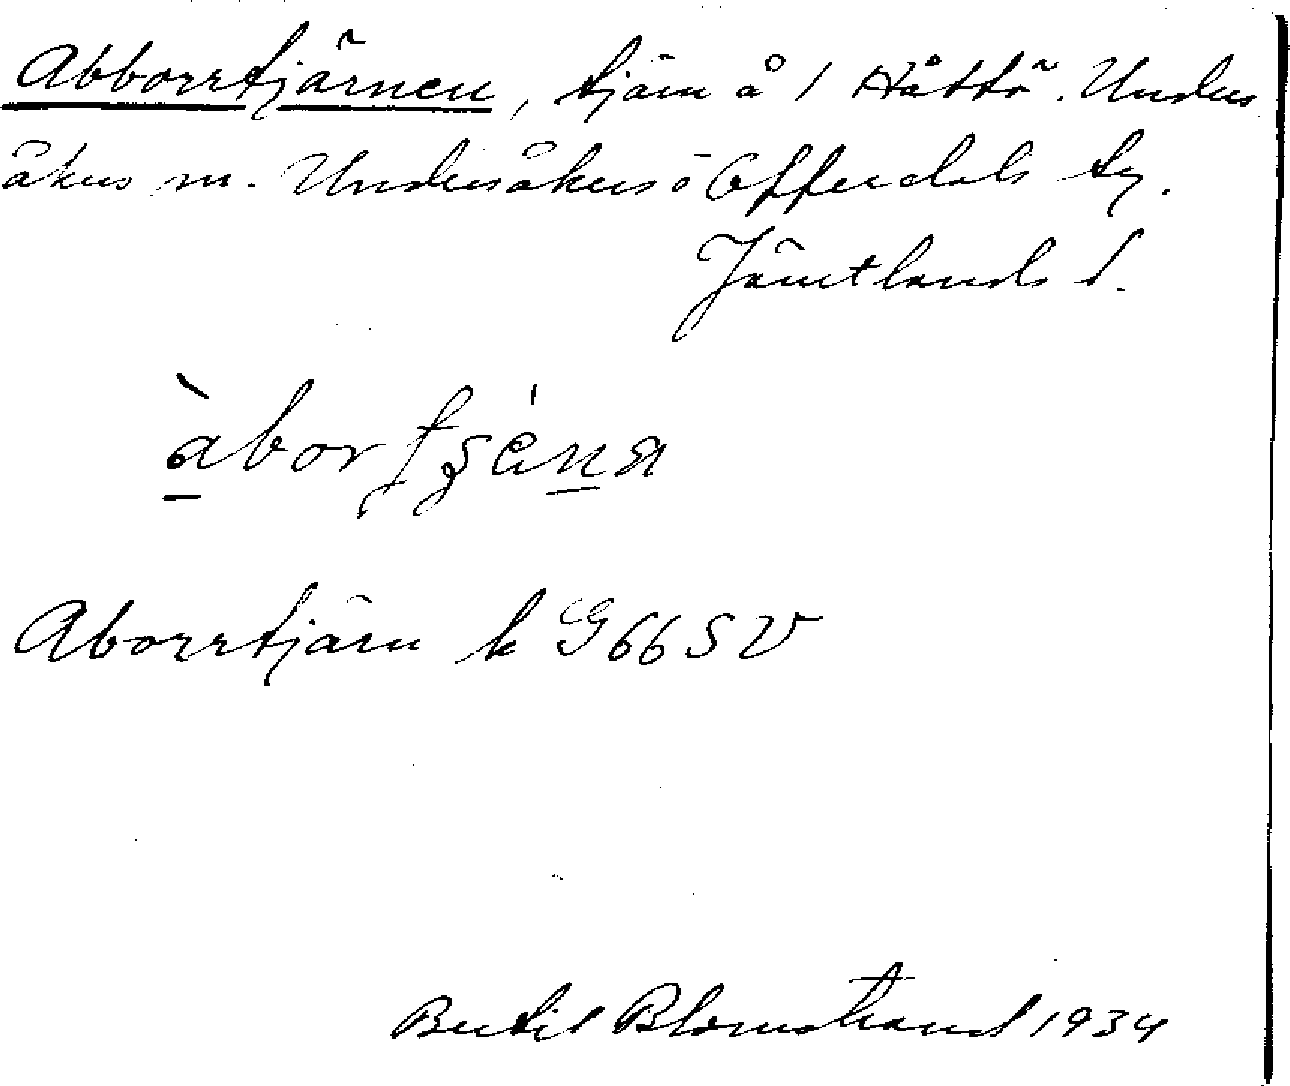 Abborrtjärnen, tjärn å 1 Håttö. Unders
åkers sn. Undersåkers o Offerdals tg.
Jämtlands l.
àbortʂénɑ
Aborrtjärn k G 66 SV
Bertil Blomstrand 1934